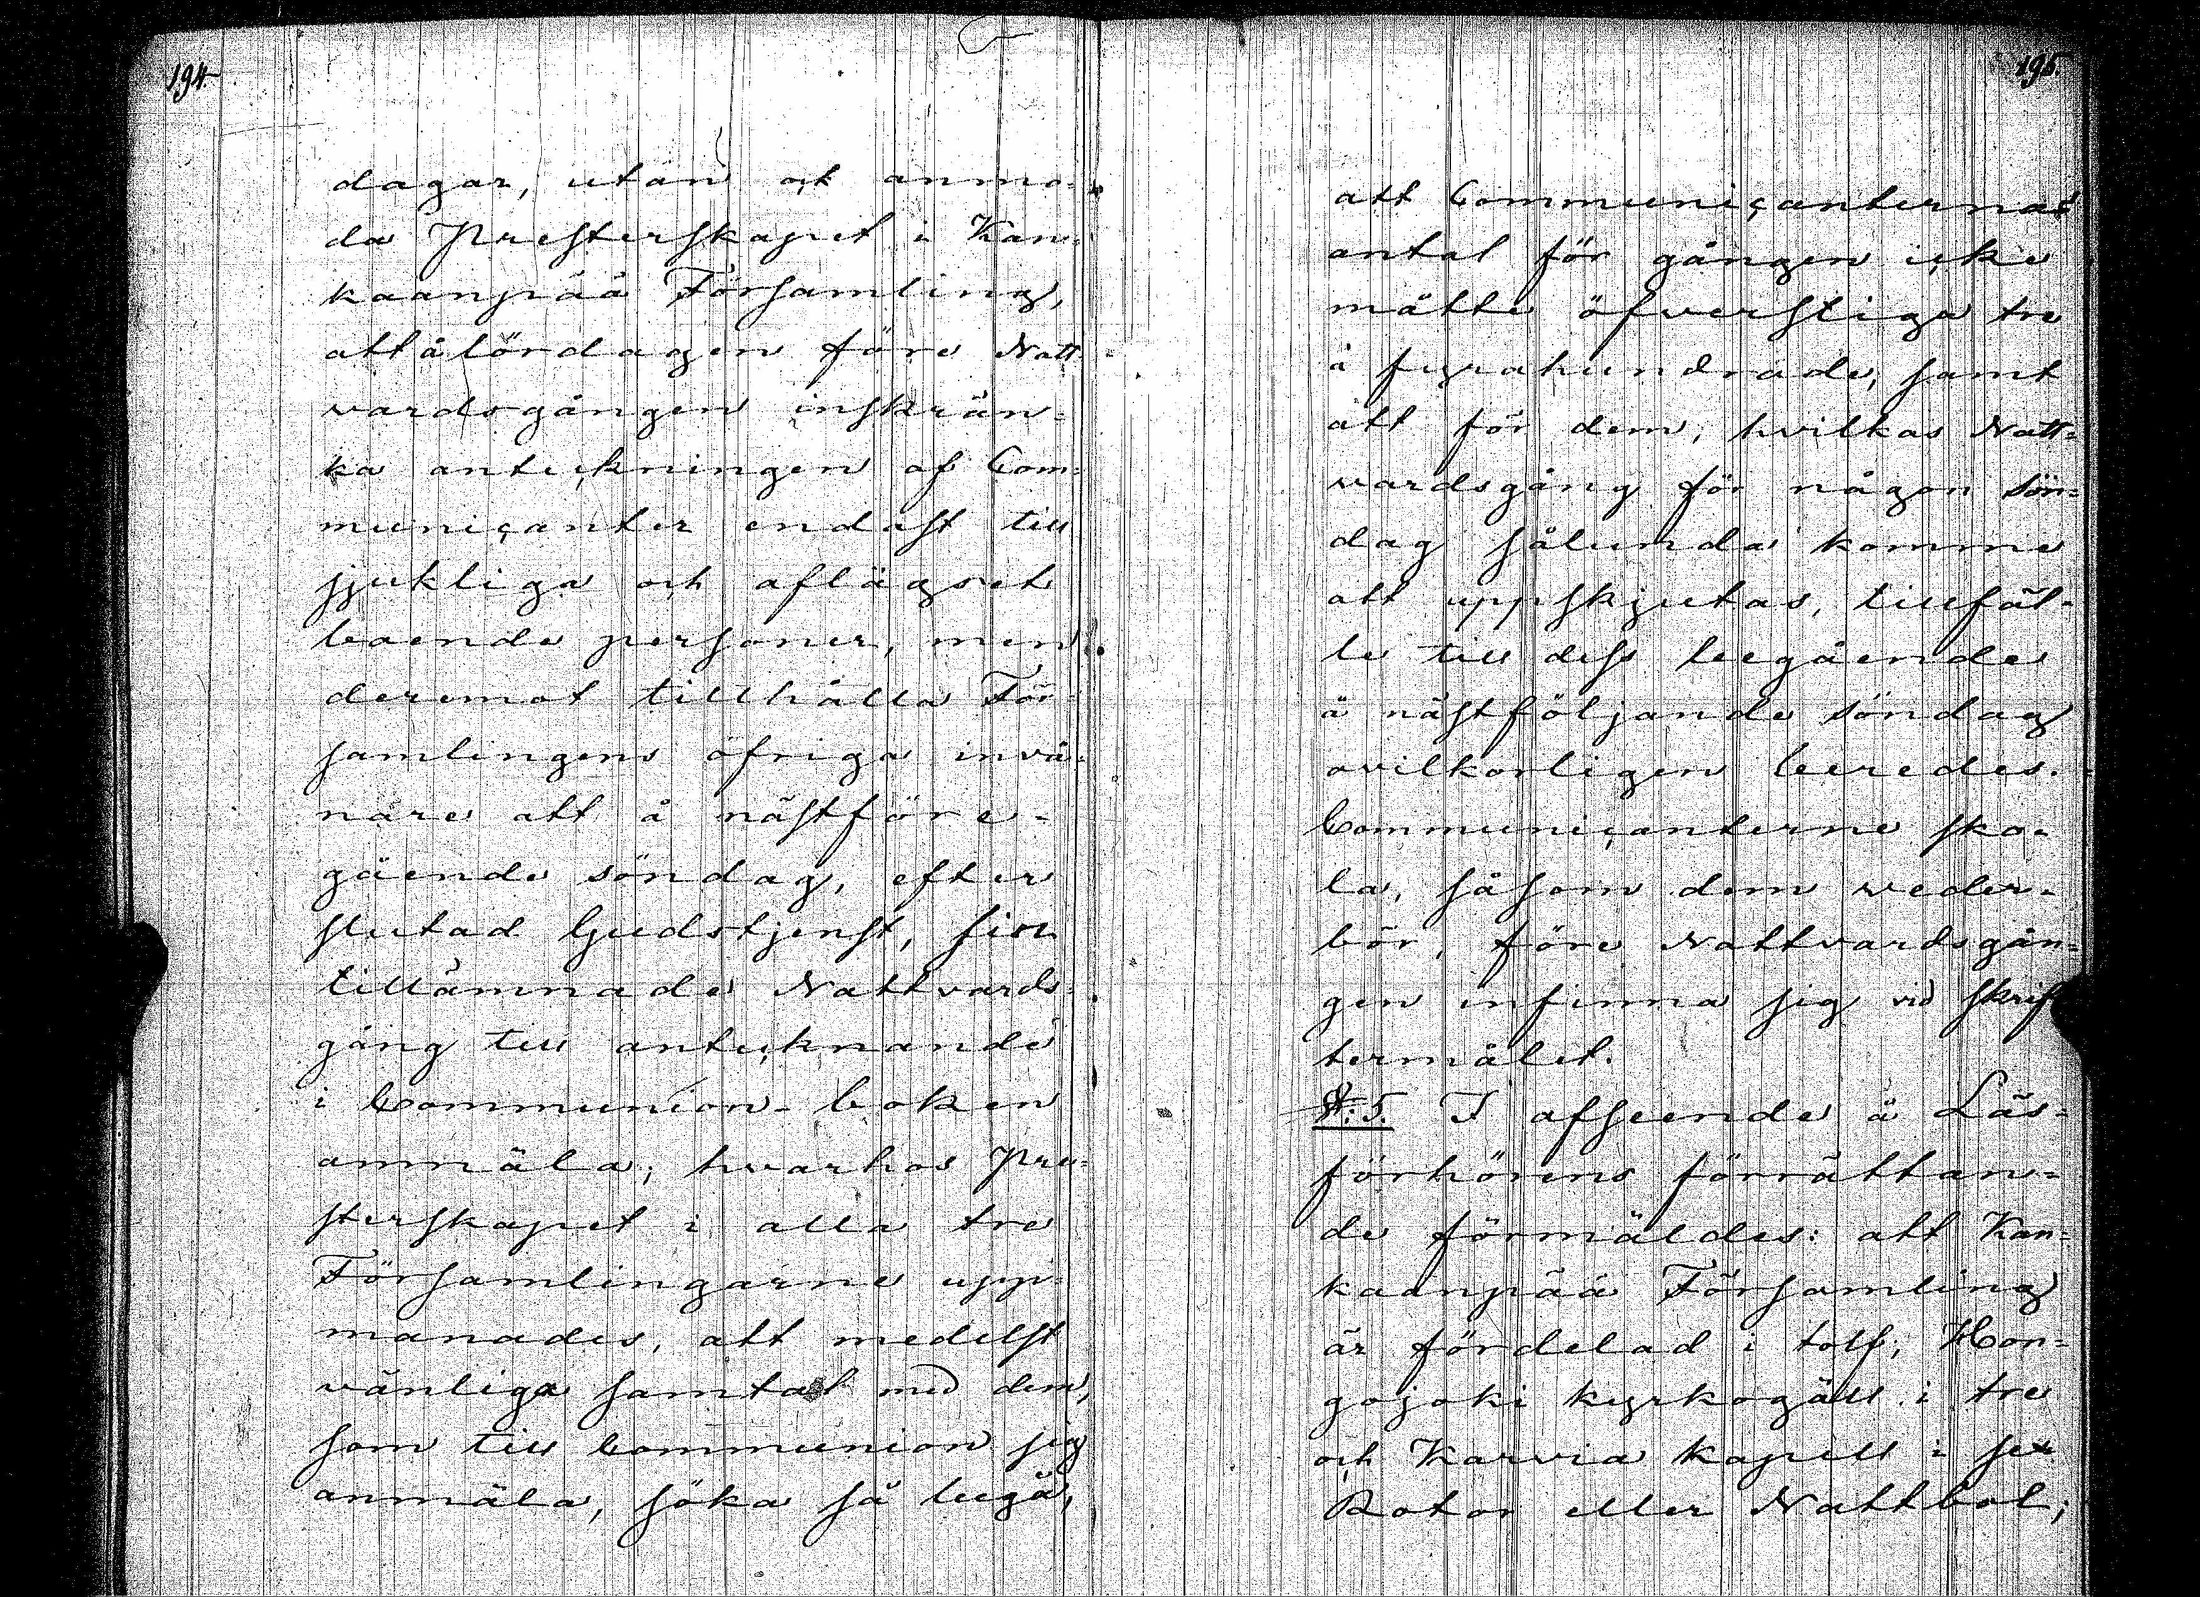 194
dagar, utan ock anmo-
da Presterskapet i Kan-
kaanpää Församling,
att å lördagen före Natt-
vardsgången inskrän-
ka anteckningen af Com-
municanter endast till
sjukliga och aflägset
boende personer, men
deremot tillhålla För-
samlingens öfriga invå-
nare att å nästföre-
gående söndag, efter
slutad Gudstjenst, sin
tillämnade Nattvards-
gång till antecknande
i Communion-boken
anmäla; hvarhos Pre-
sterskapet i alla tre
Församlingarne upp-
manades, att medelst
vänliga samtal med dem,
som till Communion sig
anmäla, söka så begå,
195.
att Communicanternas
antal för gången icke
måtte öfverstiga tre
à fyrahundrade, samt
att för dem, hvilkas Natt-
vardsgång för någon sön-
dag sålunda komme
att uppskjutas, tillfäl-
le till dess begående
å nästföljande söndag
ovilkorligen beredes.
Communicanterne sko-
la, såsom dem veder-
bör, före Nattvardsgån-
gen infinna sig vid skrif-
termålet.
§: 5. I afseende å Läs-
förhörens förrättan-
de förmäldes: att Kan-
kaanpää Församling
är fördelad i tolf, Hon-
gojoki kyrkogäll i tre
och Karvia kapell i sex
Rotor eller Nattbol;